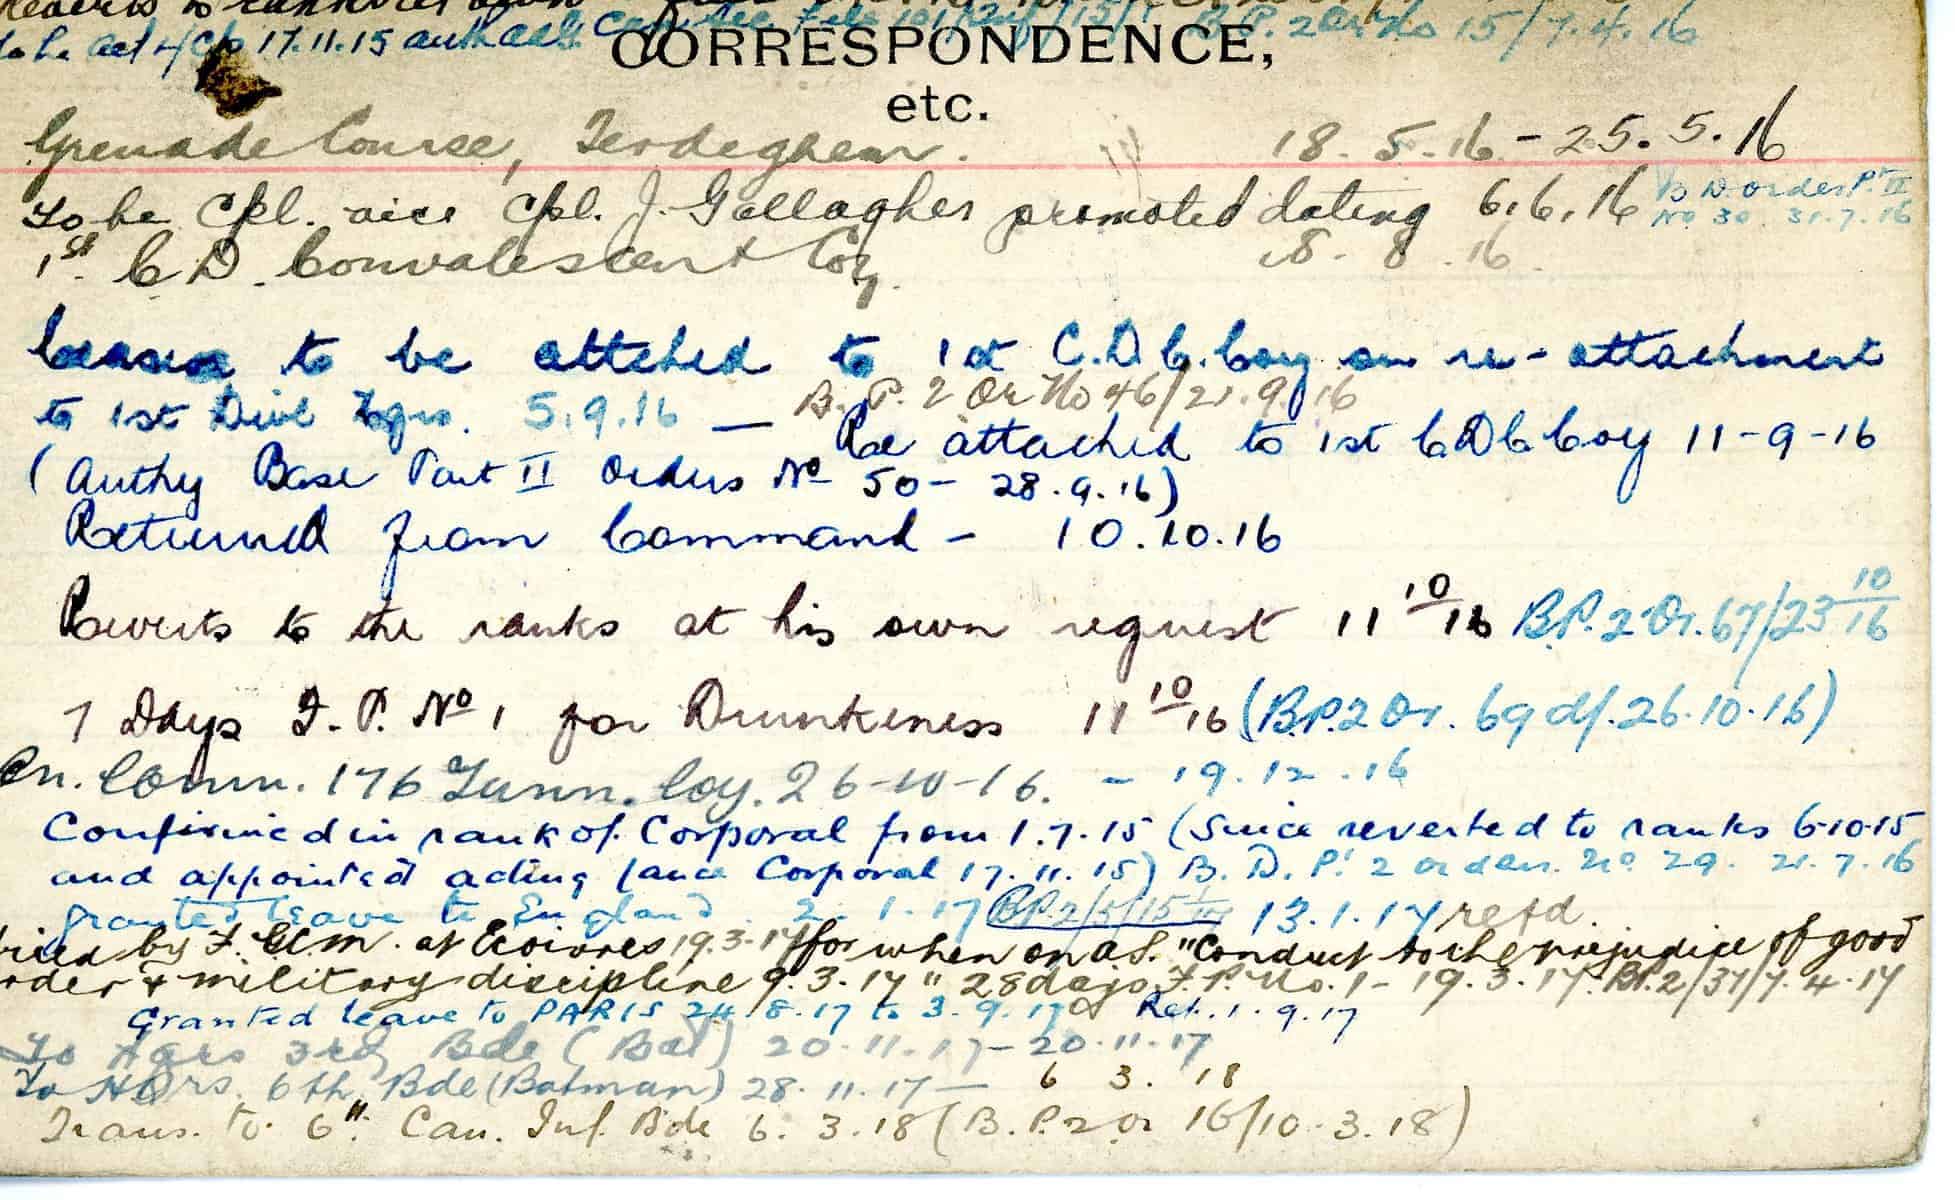 Reverts to ranks
to be act L/Cpl 17.11.15 B.P. 2 Or No 15/7.4.16
CORRESPONDENCE,
etc.
Grenade Course, Terdeghem. 18.5.16 - 25.5.16
To be Cpl. vice Cpl. J. Gallagher promoted dating 6.6.16 B D Orders Pt II
No 30. 31.7.16
1st C D. Convalescent Coy. 8.16.
Ceases to be attched to 1st C.D.C. Coy on re-attachment
to 1st Divl Hqrs. 5.9.16 — B.P. 2 Or No 46/21.9.16
Re attached to 1st CDC Coy 11-9-16
(Authy Base Part II Orders No 50- 28.9.16)
Returned from Command - 10.10.16
Reverts to the ranks at his own request 11 10/16 B.P. 2 Or. 67/23 10/16
7 Days F.P. No 1 for Drunkeness 11 10/16 (B.P.2 Or. 69 d/. 26.10.16)
On. Comm. 176 Tunn. Coy. 26-10-16. - 19.12.16
Confirmed in rank of Corporal from 1.7.15 (Since reverted to ranks 6.10.15
and appointed acting lance Corporal 17.11.15) B.D. Pt 2 orders No 29. 21.7.16
granted leave to England. 2.1.17 BP.2/5/15 1/17 13.1.17 retd.
Tried by F.G.C.M. at Ecoivres 19.3.17 for when on A.S. "Conduct to the prejudice of good
order & military discipline 9.3.17" 28 days F.P. No. 1 - 19.3.17. BP.2/37/7.4.17
Granted leave to PARIS 24.8.17 to 3.9.17 Ret. 1.9.17
To Hqrs 3rd Bde (Bat) 20.11.17 - 20.11.17
To HQrs. 6th Bde (Batman) 28.11.17 — 6 3. 18
Trans. to 6". Can. Inf. Bde 6.3.18 (B.P. 2 Or 16/10.3.18)